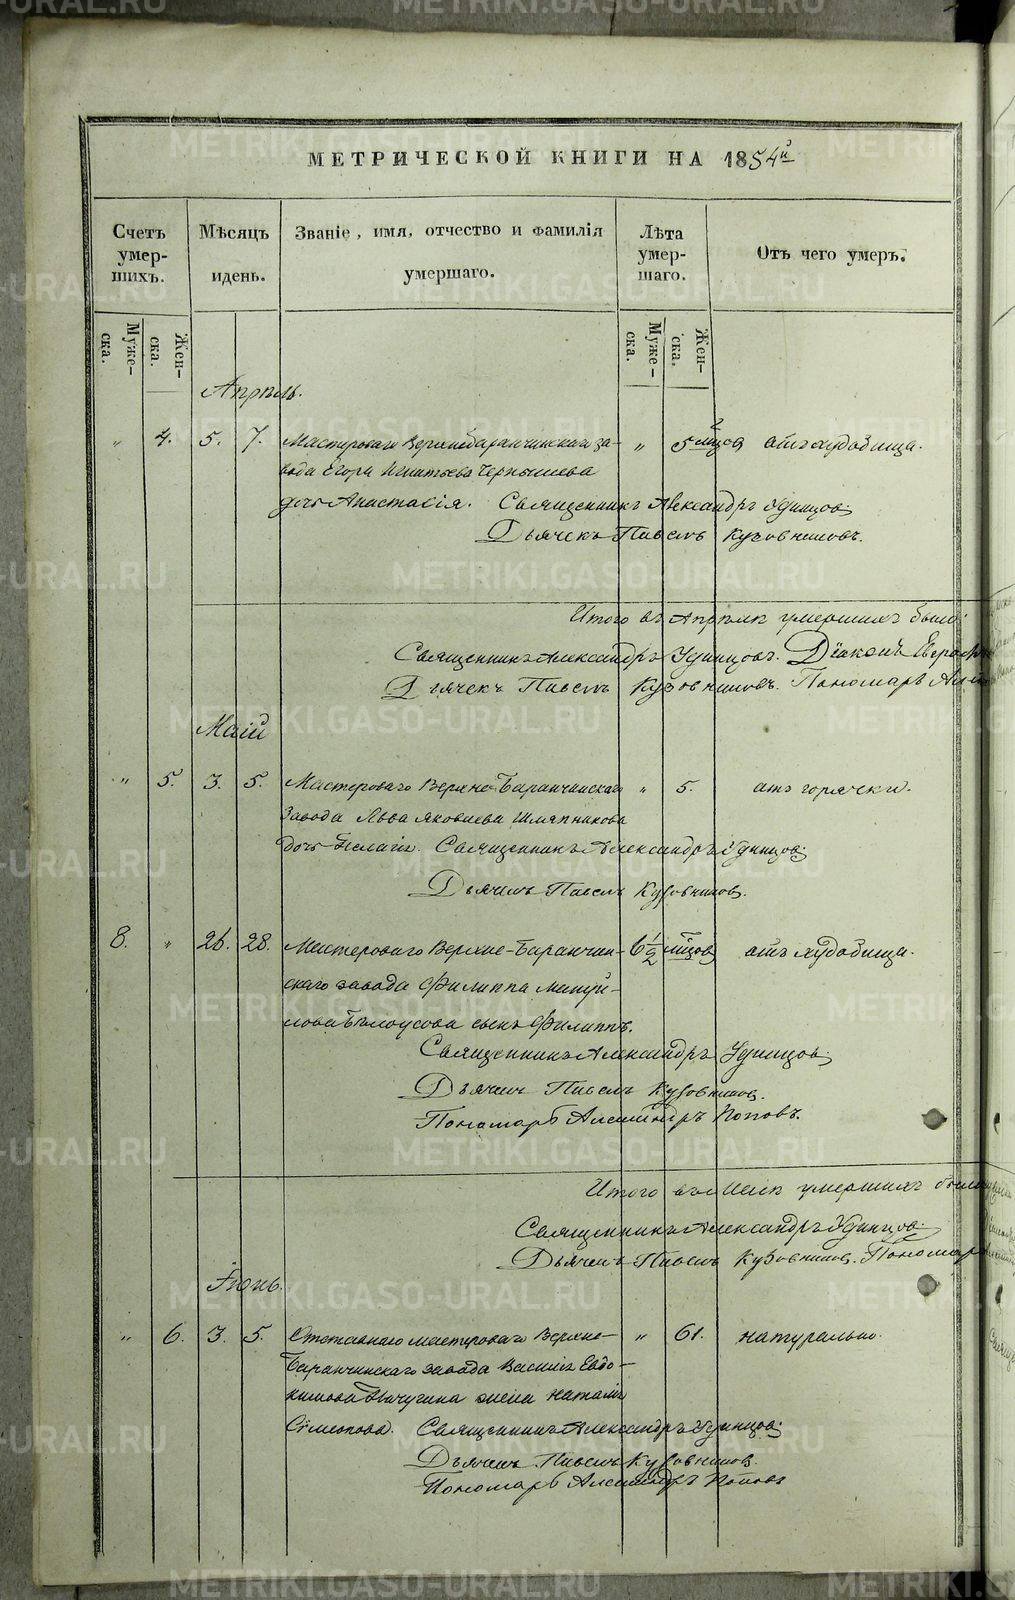 МЕТРИЧЕСКОЙ КНИГИ НА 1854й
Счетъ умер- шихъ.
Мѣсяцъ и день.
Званіе, имя, отчество и фамилія умершаго.
Лѣта умер- шаго.
Отъ чего умеръ.
Муже- ска.
Жен- ска.
Муже- ска.
Жен- ска.
Апрѣль.
" 4. 5. 7. Мастероваго Верхнебаранчинскаго за- " 5 мцов отъ худобища.
вода Егора Игнатьева Чернышева
дочь Анастасія. Священникъ Александръ Удинцов.
Дьячекъ Павелъ Кузовниковъ.
Итого въ Апрѣлѣ умершихъ было:
Священникъ Александръ Удинцовъ. Діаконъ
Дьячекъ Павелъ Кузовниковъ. Пономарь
Маій
" 5. 3. 5. Мастероваго Верхне-Баранчинскаго " 5. отъ горячки.
завода Льва Яковлева Шляпникова
дочь Пелагія. Священникъ Александръ Удинцов.
Дьячекъ Павелъ Кузовников.
8. " 26. 28. Мастероваго Верхне-Баранчин- 6 1/2 мцов отъ худобища.
скаго завода Филиппа Мануй-
лова Бѣлоусова сынъ Филиппъ.
Священникъ Александръ Удинцов.
Дьячекъ Павелъ Кузовников.
Пономарь Александръ Поповъ.
Итого въ Маіѣ умершихъ было
Священникъ Александръ Удинцов.
Дьячекъ Павелъ Кузовников. Пономарь
Іюнь.
" 6. 3. 5. Отставнаго мастероваго Верхне- " 61. натурально.
Баранчинскаго завода Василія Евдо-
кимова Пичугина жена Наталія
Симеонова. Священникъ Александръ Удинцов.
Дьячекъ Павелъ Кузовников.
Пономарь Александръ Поповъ
METRIKI.GASO-URAL.RU